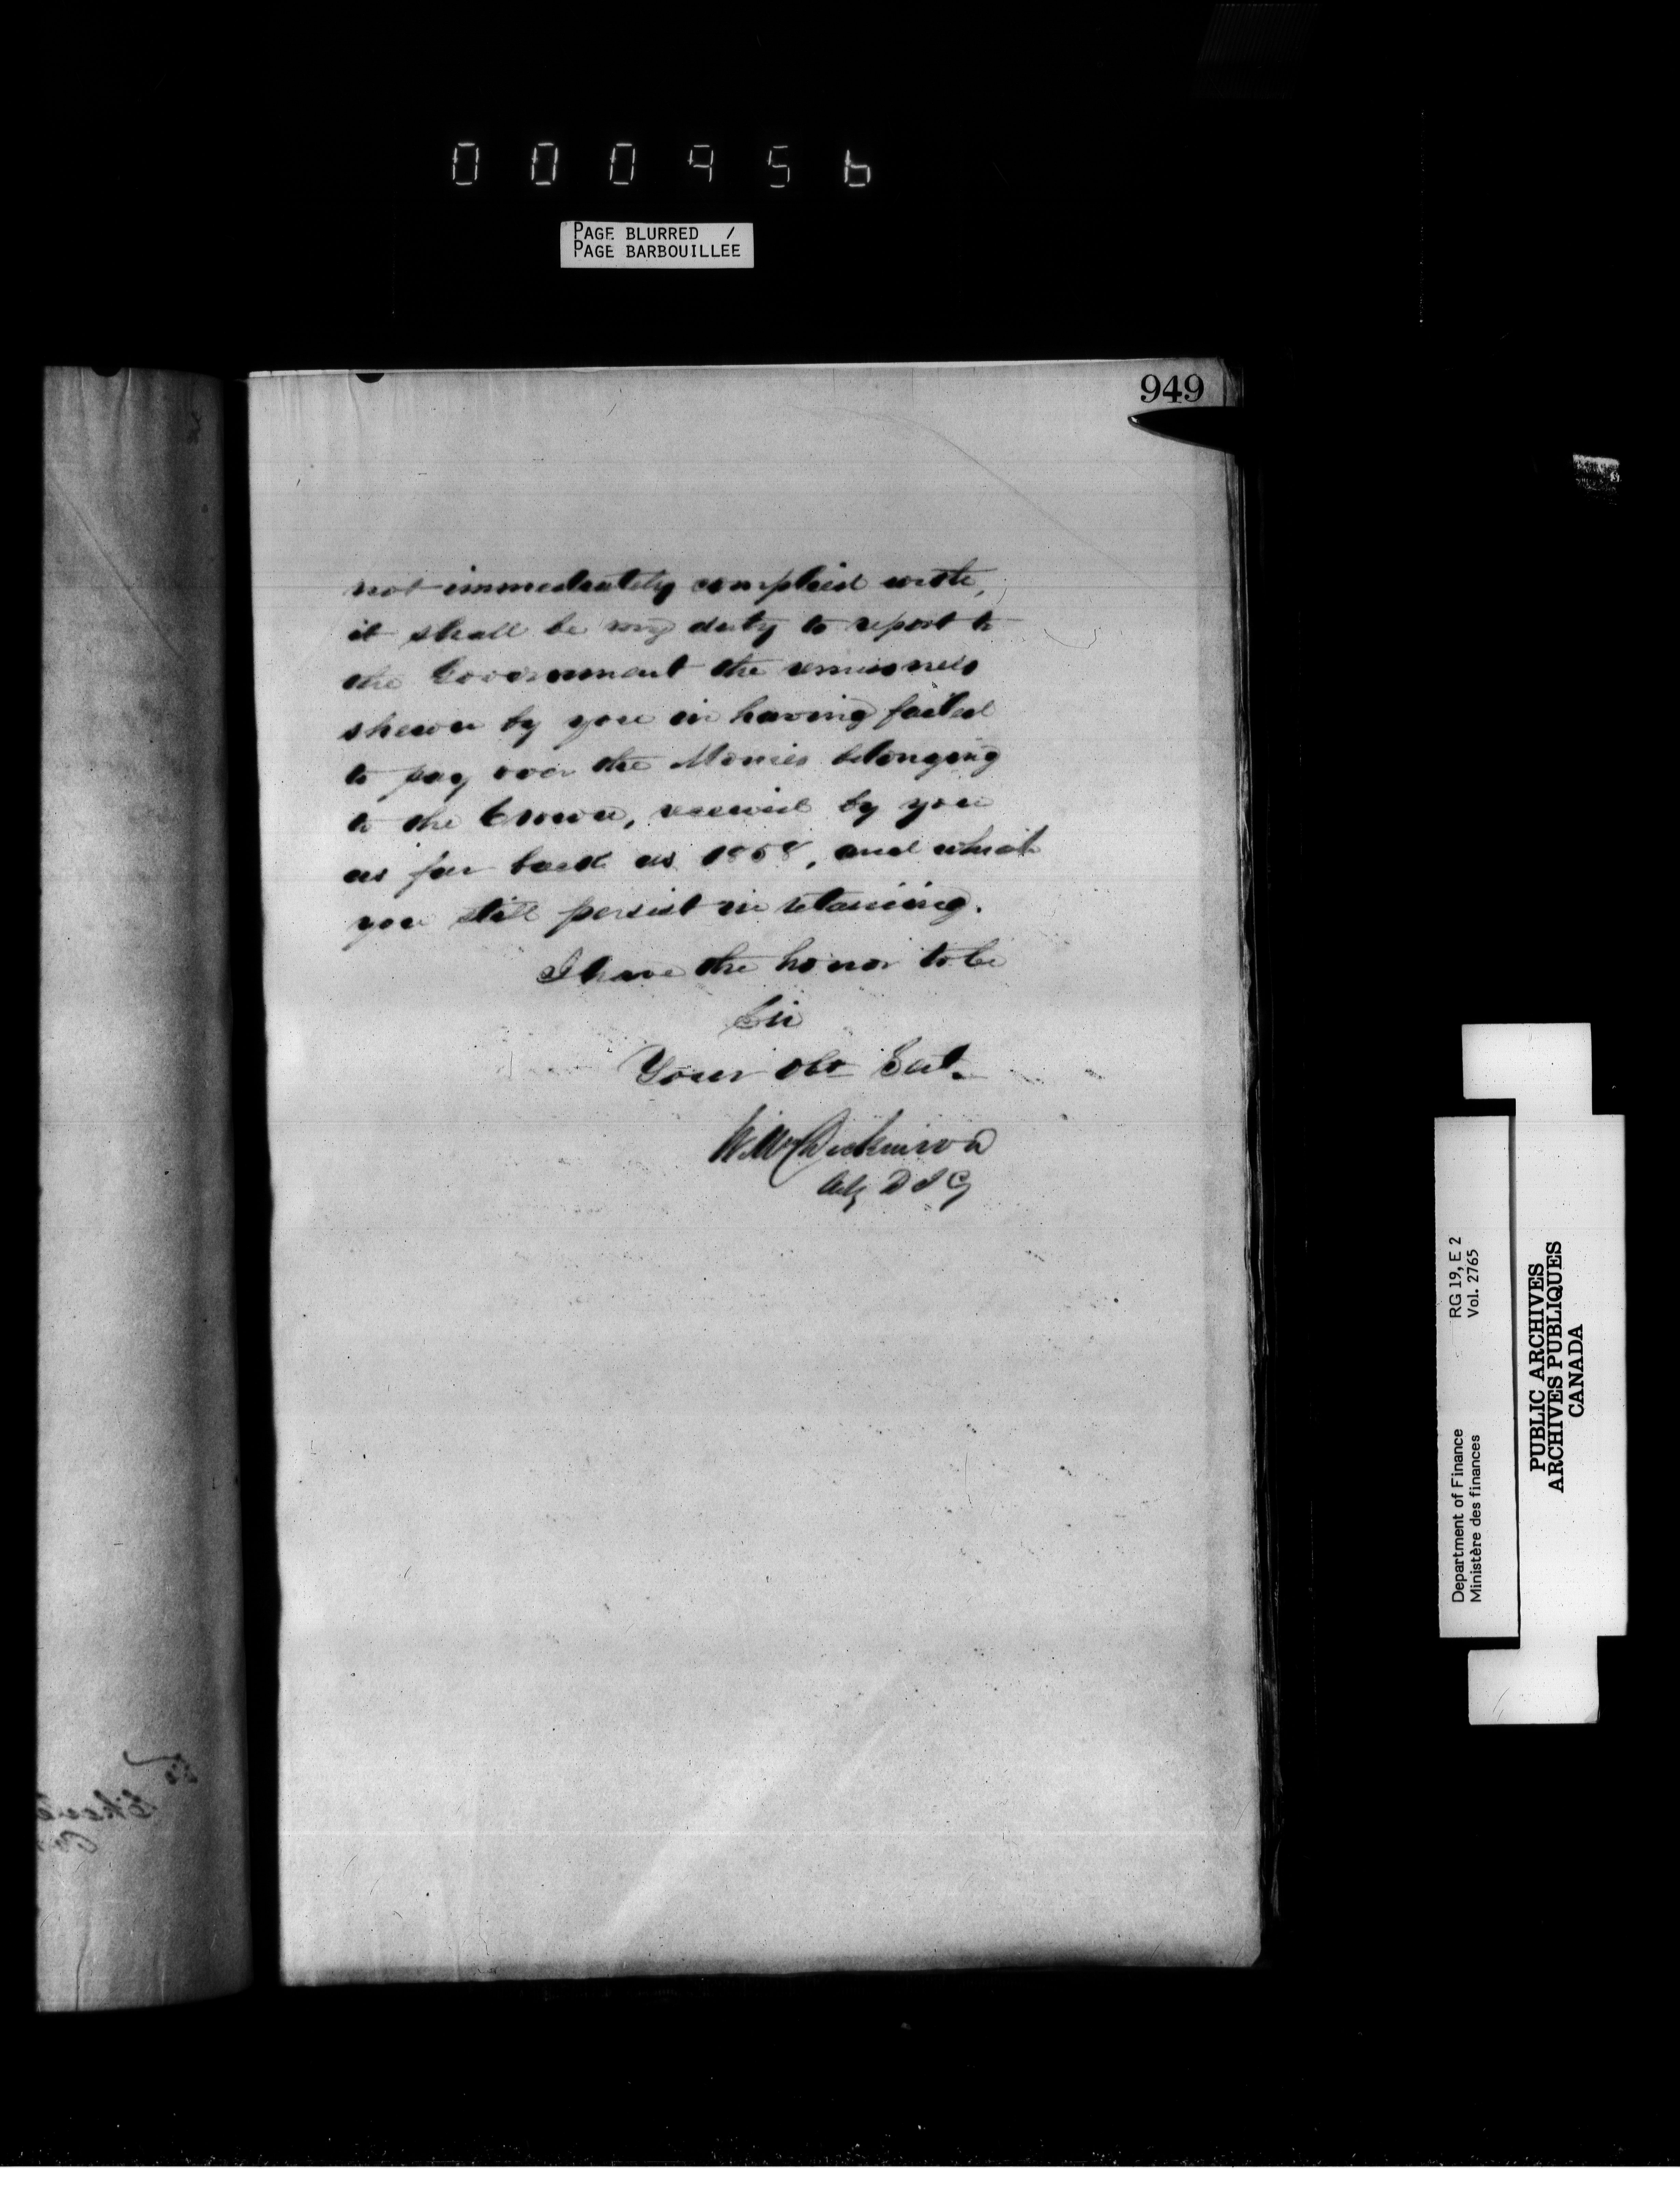 000956
PAGE BLURRED /
PAGE BARBOUILLEE
949
not immediately complied with,
it shall be my duty to report to
the Government the remissness
shewn by you in having failed
to pay over the Monies belonging
to the Crown, received by you
as far back as 1858, and which
you still persist in retaining.
I have the honor to be
Sir
Your Obt Sert.
Wm Dickinson
Actg D I G
Department of Finance RG 19, E 2
Ministère des finances Vol. 2765
PUBLIC ARCHIVES
ARCHIVES PUBLIQUES
CANADA